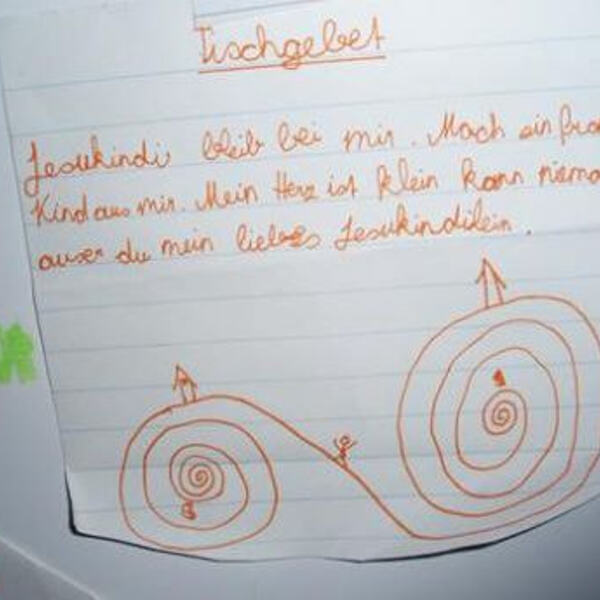 Tischgebet
Jesukindi bleib bei mir. Mach ein fro
Kind aus mir. Mein Herz ist klein kann niema
auser du mein liebes Jesukindilein.